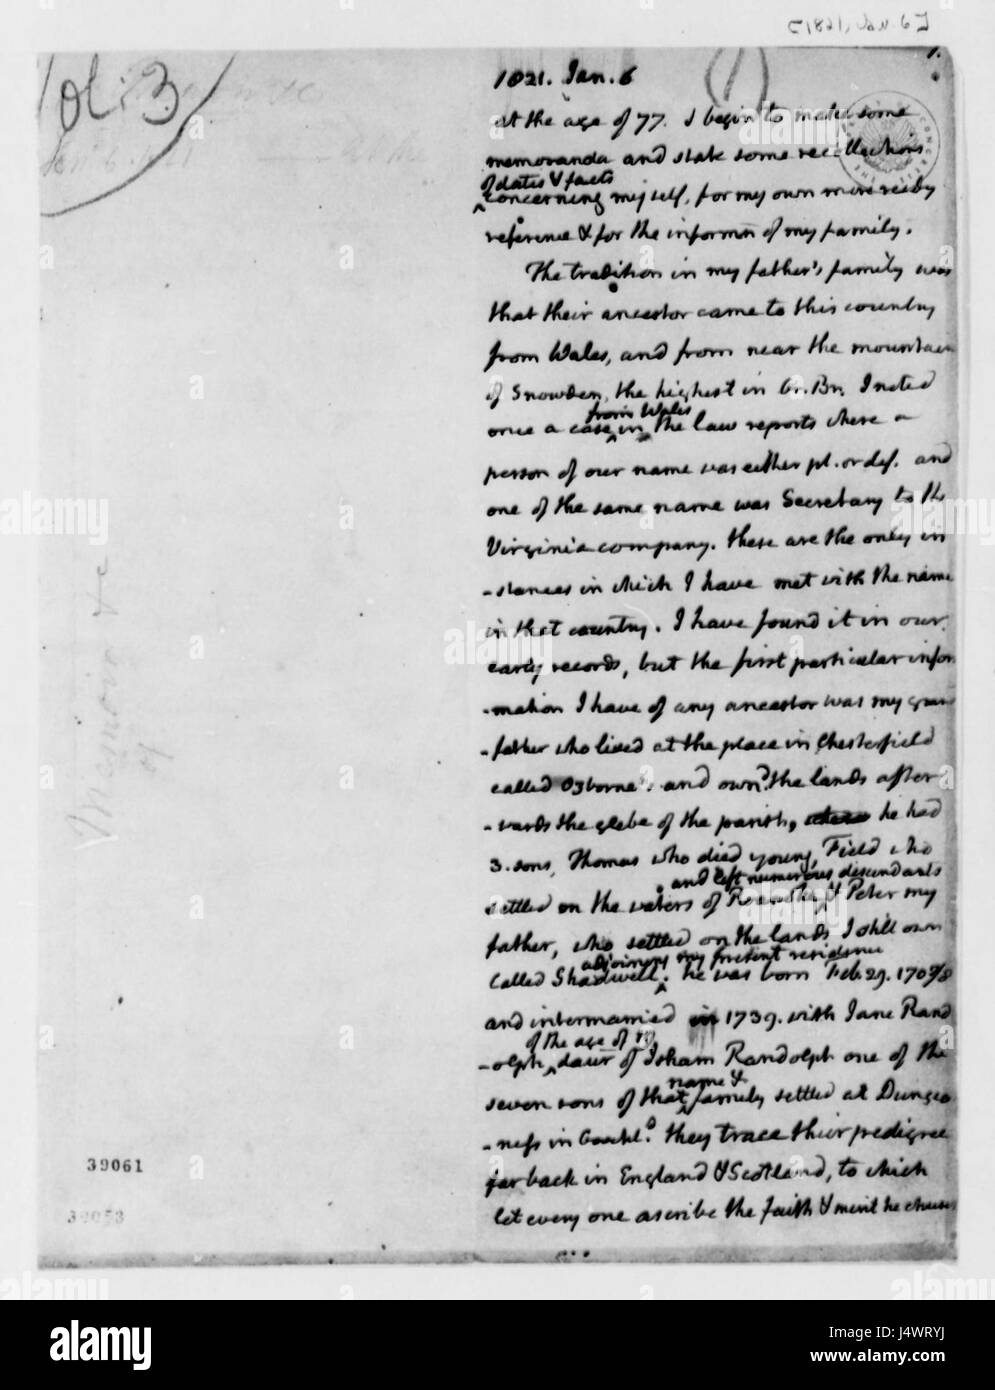 [1821, Jan. 6]
ol: 3
(1)
1.
1821. Jan. 6
at the age of 77. I begin to make some
memoranda and state some recollections
of dates & facts
concerning myself, for my own more ready
reference & for the informn of my family.
The tradition in my father's family was
that their ancestor came to this country
from Wales, and from near the mountain
of Snowden, the highest in Gr. Br. I noted
from Wales
once a case in the law reports where a
person of our name was either pl. or def. and
one of the same name was Secretary to the
Virginia company. these are the only in
-stances in which I have met with the name
in that country. I have found it in our
early records, but the first particular infor
-mation I have of any ancestor was my grand
-father who lived at the place in Chesterfield
called Ozborne's. and ownd. the lands after
-wards the glebe of the parish, he had
3. sons, Thomas who died young, Field who
and left numerous descendants
settled on the waters of Roanoke, & Peter my
father, who settled on the lands I still own
adjoining my present residence
called Shadwell. he was born Feb. 29. 1707/8
and intermarried in 1739. with Jane Rand
of the age of 19.
-olph, daur of Isham Randolph one of the
name &
seven sons of that family settled at Dungeo
-ness in Goochld. they trace their pedigree
far back in England & Scotland, to which
let every one ascribe the faith & merit he chuses
Memoir &c
of
39061
alamy
a
alamy
Image ID: J4WRYJ
www.alamy.com